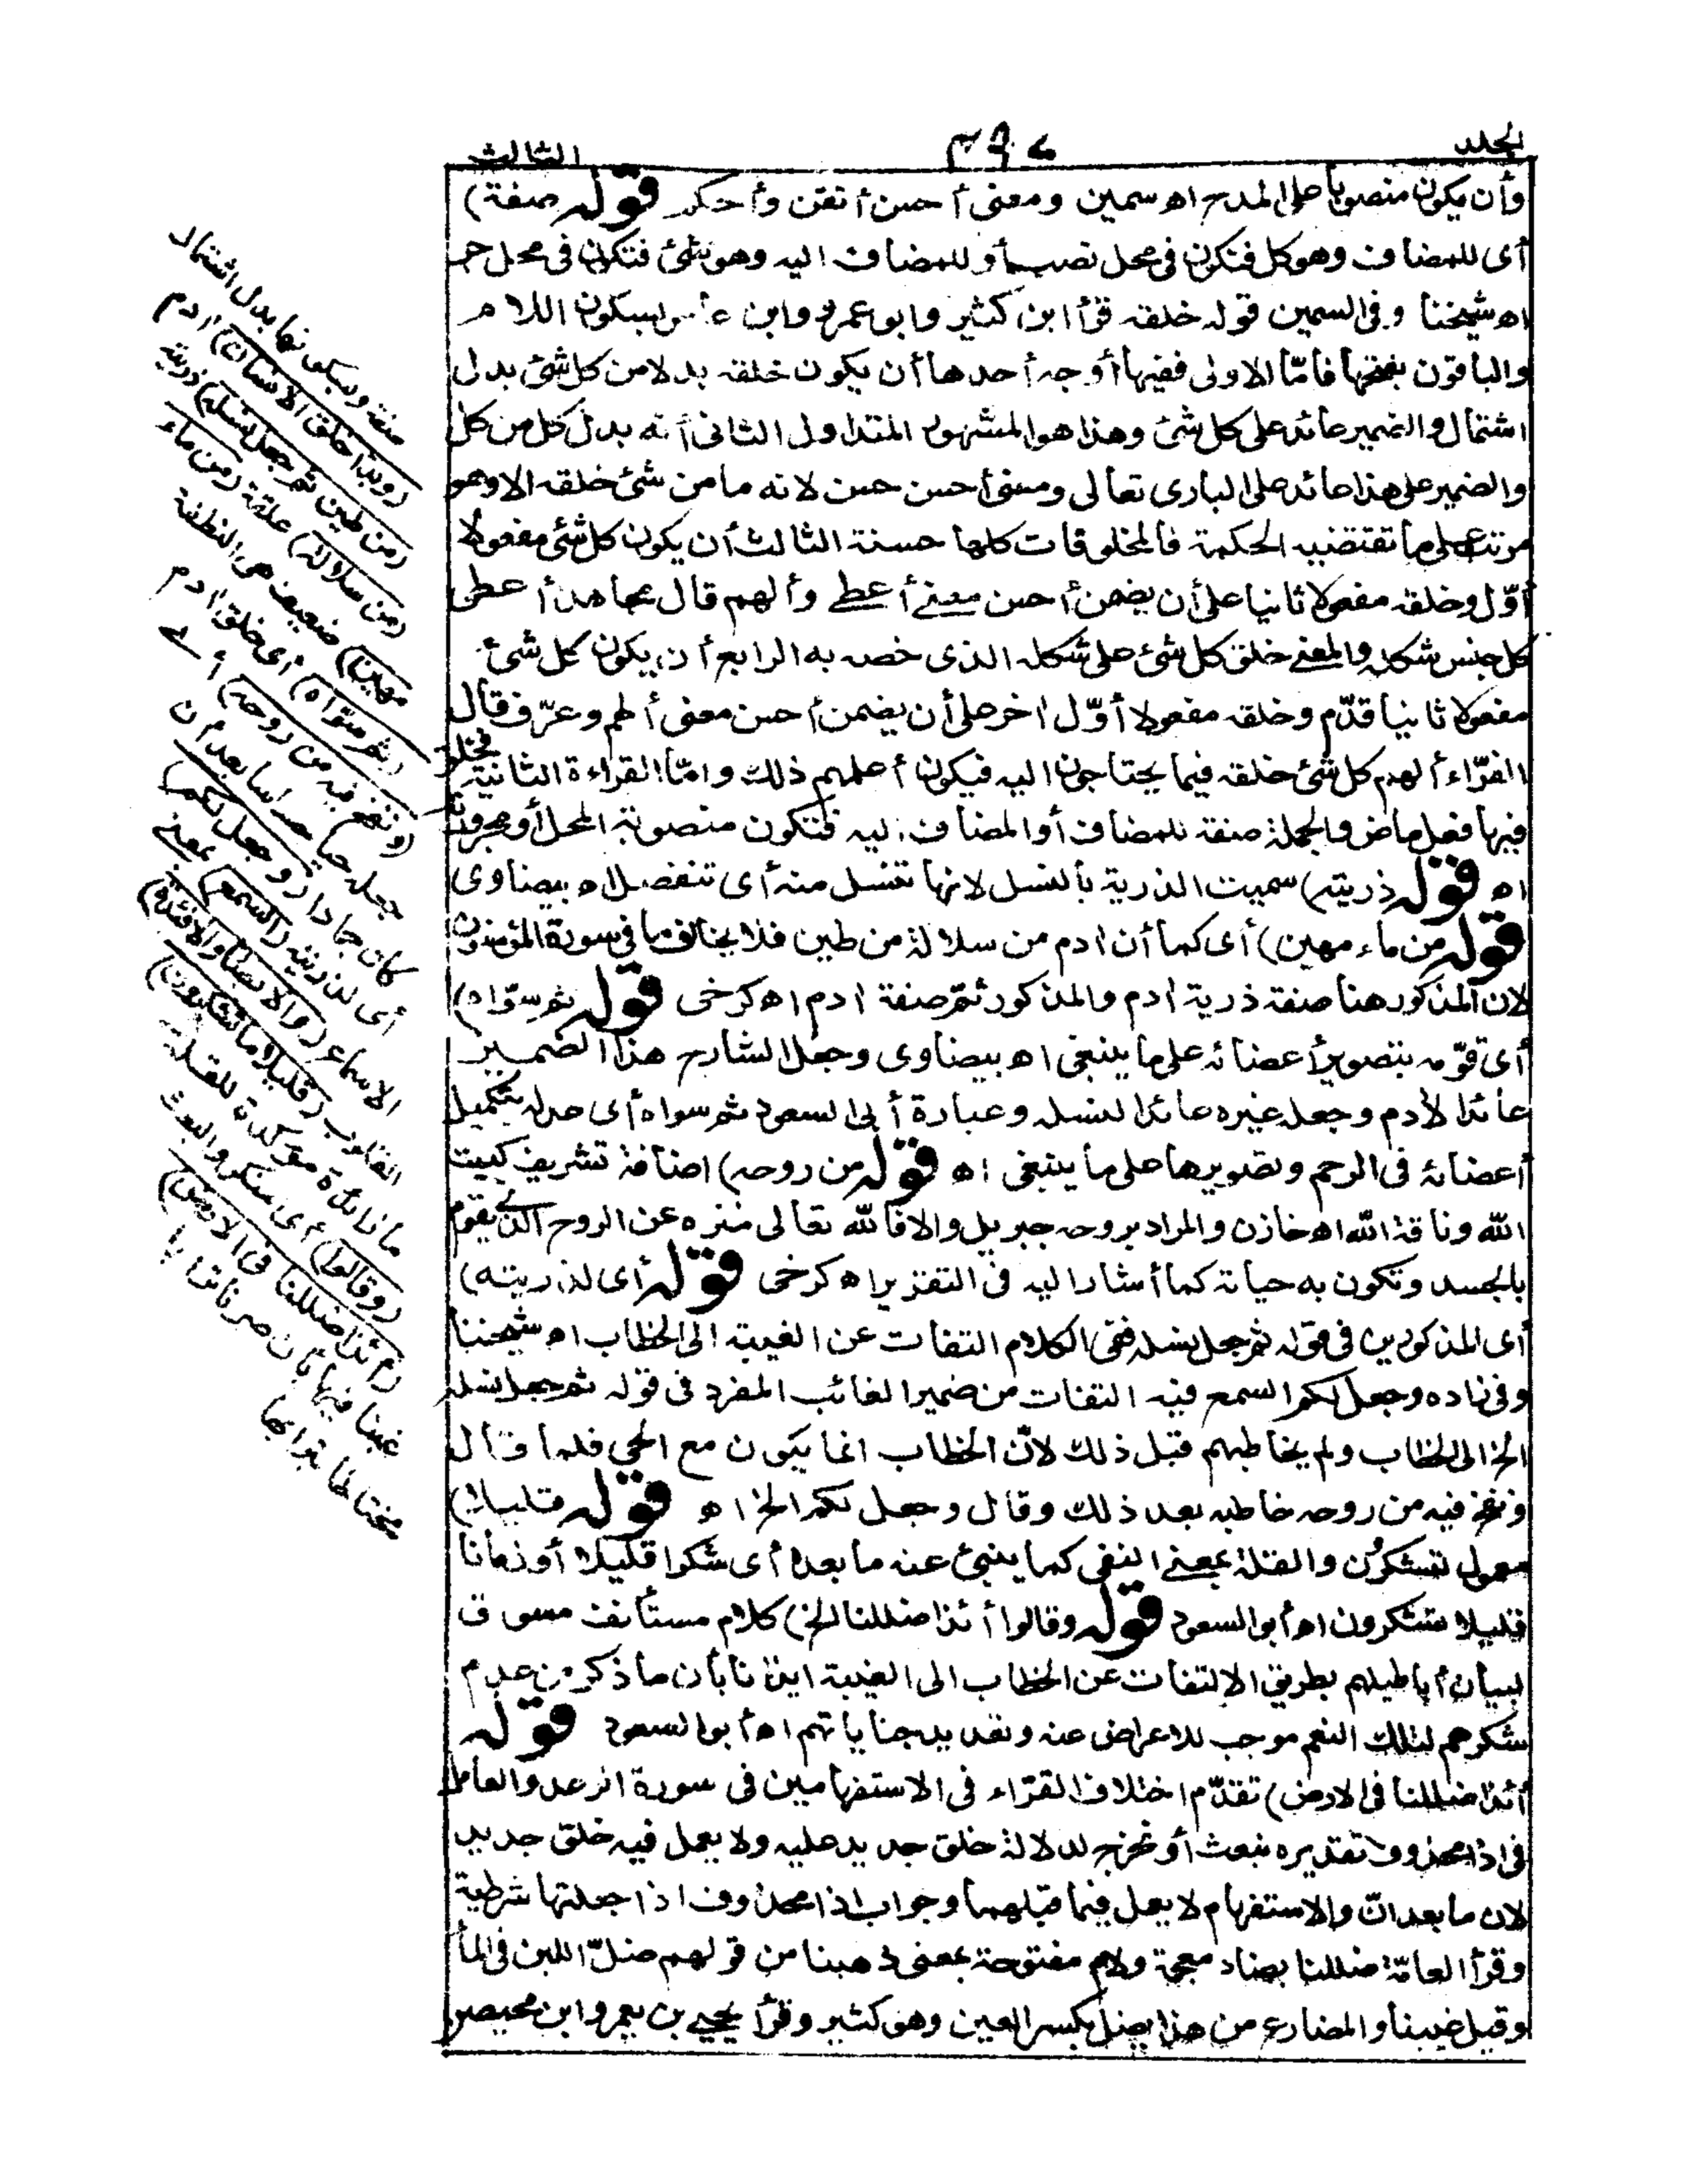 الجلد
٤٩٧
الثالث
وأن يكون منصوبا على المدح اه سمين ومعنى أحسن أتقن وأحكم قوله صفة)
أى للمضاف وهو كل فتكون فى محل نصب أو للمضاف اليه وهو شئ فتكون فى محل جر
اه شيخنا وفى السمين قوله خلقه قرأ ابن كثير وابو عمرو وابن عامر بسكون اللام
والباقون بفتحها فأمّا الاولى ففيها أوجه أحدها أن يكون خلقه بدلا من كل شئ بدل
اشتمال والضمير عائد على كل شئ وهذا هو المشهور المتداول الثانى أنه بدل كل من كل
والضمير على هذا عائد على البارى تعالى ومعنى أحسن حسن لانه ما من شئ خلقه الا وهو
مرتب على ما تقتضيه الحكمة فالمخلوقات كلها حسنة الثالث أن يكون كل شئ مفعولا
أوّل وخلقه مفعولا ثانيا على أن يضمن أحسن معنى أعطى وألهم قال مجاهد أعطى
كل جنس شكله والمعنى خلق كل شئ على شكله الذى خصه به الرابع أن يكون كل شئ
مفعولا ثانيا قدّم وخلقه مفعولا أوّل اخر على أن يضمن أحسن معنى ألهم وعرّف قال
الفرّاء ألهم كل شئ خلقه فيما يحتاجون اليه فيكون أعلمهم ذلك وامّا القراءة الثانية فخلق
فيها فعل ماض والجملة صفة للمضاف أو المضاف اليه فتكون منصوبة المحل أو مجرورته
اه قوله ذريته) سميت الذرية بالنسل لانها تنسل منه أى تنفصل اه بيضاوى
قوله من ماء مهين) أى كما أن ادم من سلالة من طين فلا يخالف ما فى سورة المؤمنون
لان المذكور هنا صفة ذرية ادم والمذكور ثمّ صفة ادم اه كرخى قوله ثم سوّاه)
أى قوّمه بتصوير أعضائه على ما ينبغى اه بيضاوى وجعل الشارح هذا الضمير
عائدا لأدم وجعل غيره عائدا لنسله وعبارة أبى السعود ثم سواه أى عدله بتكميل
أعضائه فى الرحم وتصويرها على ما ينبغى اه قوله من روحه) اضافة تشريف كبيت
الله وناقة الله اه خازن والمراد بروحه جبريل والا فالله تعالى منزه عن الروح الذى يقوم
بالجسد وتكون به حياته كما أشار اليه فى التقرير اه كرخى قوله أى لذريته)
أى المذكورين فى قوله ثم جعل نسله ففى الكلام التفات عن الغيبة الى الخطاب اه شيخنا
وفى زاده وجعل لكم السمع فيه التفات من ضمير الغائب المفرد فى قوله ثم جعل نسله
الخ الى الخطاب ولم يخاطبهم قبل ذلك لانّ الخطاب انما يكون مع الحى فلما قال
ونفخ فيه من روحه خاطبه بعد ذلك وقال وجعل لكم الخ اه قوله قليلا)
معمول لتشكرون والقلة بمعنى النفى كما ينبئ عنه ما بعده أى شكرا قليلا أو زمانا
قليلا تشكرون اه أبو السعود قوله وقالوا أئذا ضللنا الخ) كلام مستأنف مسوق
لبيان أباطيلهم بطريق الالتفات عن الخطاب الى الغيبة ايذانا بأن ما ذكر من عدم
شكرهم لتلك النعم موجب للاعراض عنه وتعديد جناياتهم اه أبو السعود قوله
أئذا ضللنا فى الارض) تقدّم اختلاف القرّاء فى الاستفهامين فى سورة الرعد والعامل
فى اذا محذوف تقديره نبعث أو نخرج لدلالة خلق جديد عليه ولا يعمل فيه خلق جديد
لان ما بعد انّ والاستفهام لا يعمل فيما قبلهما وجواب اذا محذوف اذا جعلتها شرطية
وقرأ العامّة ضللنا بضاد معجمة ولام مفتوحة بمعنى ذهبنا من قولهم ضلّ اللبن فى الماء
وقيل غيبنا والمضارع من هذا يضل بكسر العين وهو كثير وقرأ يحيى بن يعمر وابن محيصن
صفة وبسكونها بدل اشتمال
(وبدا خلق الانسان) ادم
(من طين ثم جعل نسله) ذريته
(من سلالة) علقة (من ماء
مهين) ضعيف هى النطفة
(ثم سوّاه) أى خلق ادم
(ونفخ فيه من روحه) أى
جعله حيا حساسا بعد أن
كان جمادا (وجعل لكم)
أى لذريته (السمع) بمعنى
الاسماع (والابصار والافئدة)
القلوب (قليلا ما تشكرون)
ما زائدة مؤكدة للقلة
(وقالوا) أى منكرو البعث
(أئذا ضللنا فى الارض)
غبنا فيها بأن صرنا ترابا
مختلطا بترابها